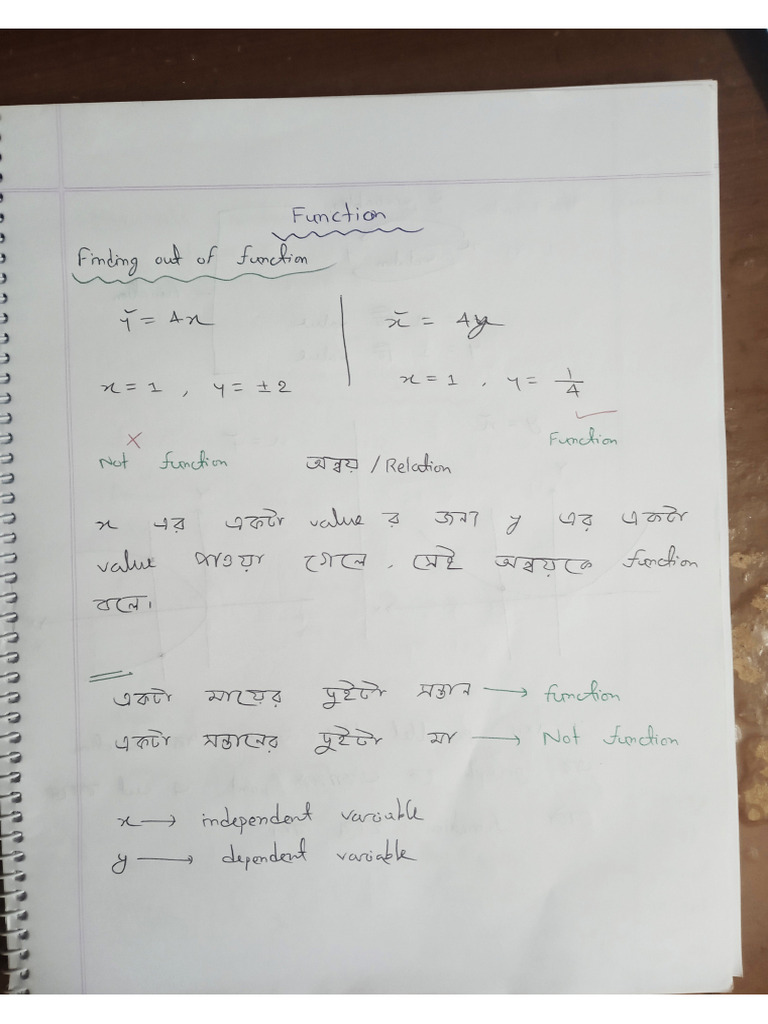 Function
Finding out of function
y² = 4x | x² = 4y
x = 1 , y = ±2 | x = 1 , y = 1/4
× ✓
Function
Not function অন্বয় / Relation
x এর একটা value র জন্য y এর একটা
value পাওয়া গেলে , সেই অন্বয়কে function
বলে।
একটা মায়ের দুইটা সন্তান → function
একটা সন্তানের দুইটা মা → Not function
x → independent variable
y → dependent variable